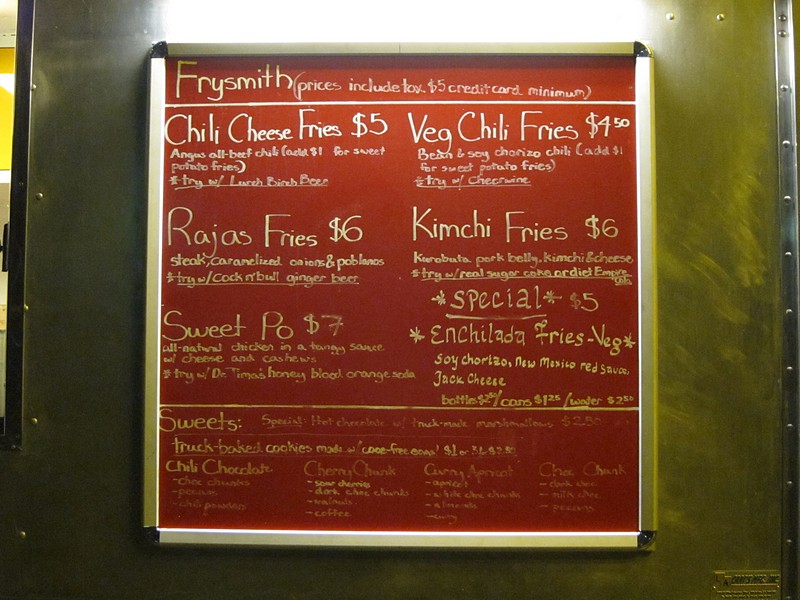 Frysmith (prices include tax. $5 credit card minimum)
Chili Cheese Fries $5
Angus all-beef chili (add $1 for sweet
potato fries)
*try w/ Lunch Birch Beer
Veg Chili Fries $4.50
& soy chorizo chili (add $1
for sweet potato fries)
*try w/ Cheerwine
Rajas Fries $6
steak, caramelized onions & poblanos
*try w/ Cock n' bull ginger beer
Kimchi Fries $6
Kurobuta pork belly, kimchi & cheese
*try w/ real sugar coke or diet Empire
Cola
*Special* $5
*Enchilada Fries-Veg*
soy chorizo, New Mexico red sauce,
Jack Cheese
Sweet Po $7
all-natural chicken in a tangy sauce
w/ cheese and cashews
*try w/ Dr. Tima's honey blood orange soda
bottles $2.50/cans $1.25/water $2.50
Sweets: Special: Hot chocolate w/ truck-made marshmallows $2.50
truck-baked cookies made w/ 'cage-free eggs' $1 or 3/$2.50
Chili Chocolate
- choc chunks
- pecans
- chili powders
Cherry Chunk
- sour cherries
- dark choc chunks
- walnuts
- coffee
Curry Apricot
- apricot
- white choc chunks
- almonds
- curry
Choc Chunk
- dark choc
- milk choc
- pecans